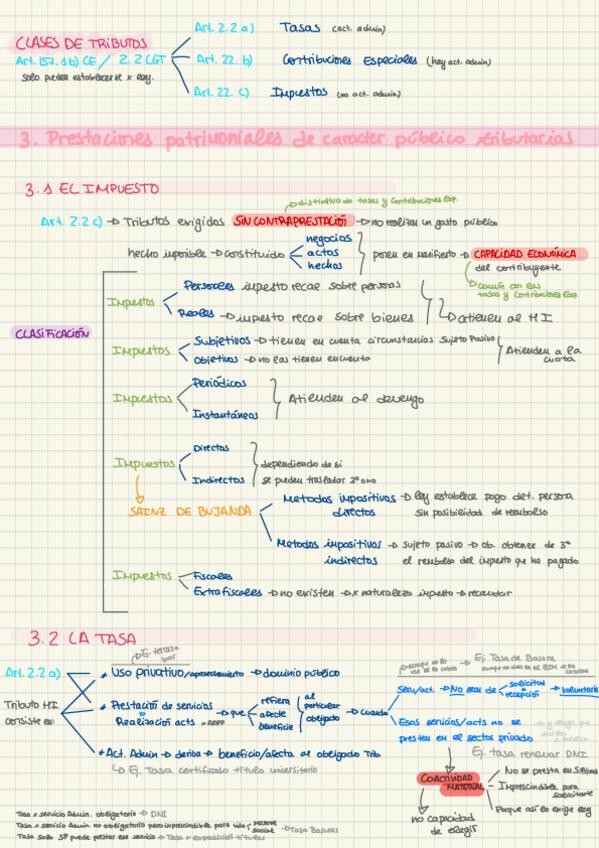 CLASES DE TRIBUTOS
Art. 157.1b) CE / 2.2 LGT
solo pueden establecerse x ley.
Art. 2.2 a) Tasas (act. admin)
Art. 22. b) Contribuciones Especiales (hay act. admin)
Art. 22. c) Impuestos (no act. admin)
3. Prestaciones patrimoniales de caracter público tributarias
3.1 EL IMPUESTO
→ distintivo de tasas y contribuciones Esp.
Art. 2.2 c) → Tributos exigidos SIN CONTRAPRESTACIÓN → no realizan un gasto público
hecho imponible → constituido negocios actos hechos ponen en manifiesto → CAPACIDAD ECONÓMICA
del contribuyente
→ común con las
tasas y Contribuciones Esp.
CLASIFICACIÓN
Impuestos
Personales impuesto recae sobre personas
Reales → impuesto recae sobre bienes
→ atienen al HI
Impuestos
Subjetivos → tienen en cuenta circunstancias Sujeto Pasivo
Objetivos → no las tienen en cuenta
Atienden a la
cuota
Impuestos
Periódicos
Instantáneos
Atienden al devengo
Impuestos
Directos
Indirectos
dependiendo de si
se pueden trasladar 3º
SAINZ DE BUJANDA
Metodos impositivos → ley establece pago det. persona
directos sin posibilidad de reembolso
Metodos impositivos → sujeto pasivo → ob. obtener de 3º
indirectos el rembolso del impuesto que ha pagado
Impuestos
Fiscales
Extrafiscales → no existen → x naturaleza impuesto → recaudar
3.2 LA TASA
→ Ej. terraza
bar
Art. 2.2 a)
Tributo HI
consiste en:
* Uso privativo/aprovechamiento → dominio público
* Prestación de servicios
o
Realización acts
→ que
refiera
afecte
beneficie
al
particular
obligado
→ cuando
→ Ej. Tasa de Basura
Serv/act. → No sean de solicitud
o
recepción voluntaria
Esos servicios/acts no se
presten en el sectos privado
* Act. Admin → deriva → beneficio/afecta al obligado Trib
→ Ej. Tasa certificado título universitario
Ej. tasa renovar DNI
COACTIVIDAD
MATERIAL
No se presta en S.Privado
Imprescindible para
solicitante
Porque así lo exige ley
no capacidad
de elegir
Tasa x servicio Admin. obligatorio → DNI
Tasa x servicio Admin no obligatorio pero imprescindible para vida personal social → Tasa Basuras
Tasa solo SP puede prestar ese servicio → Tasa x expedición títulos